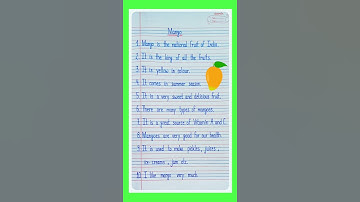 Mango
1. Mango is the national fruit of India.
2. It is the king of all the fruits.
3. It is yellow in colour.
4. It comes in summer season.
5. It is a very sweet and delicious fruit.
6. There are many types of mangoes.
7. It is a great source of Vitamin A and C.
8. Mangoes are very good for our health.
9. It is used to make pickles, juices,
ice-creams, jam etc.
10. I like mango very much.